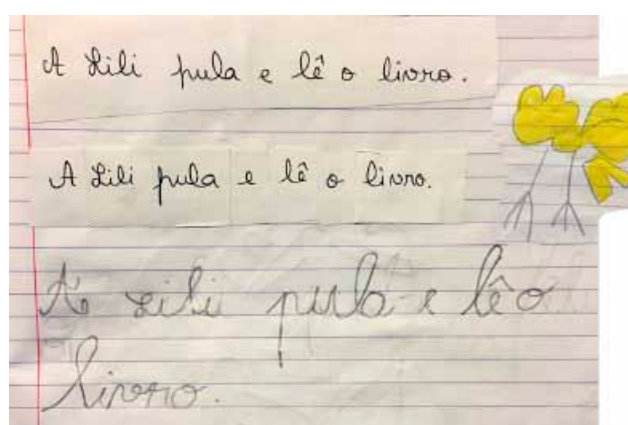 A Lili pula e lê o livro.
A Lili pula e lê o livro.
A Lili pula e lê o
livro.